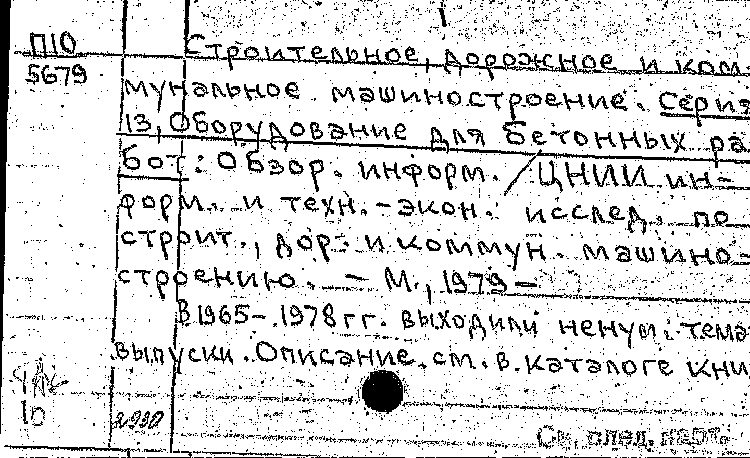 П10
5679
Строительное, дорожное и ком-
мунальное машиностроение. Серия
13, Оборудование для бетонных ра
бот: Обзор. информ. / ЦНИИ ин-
форм. и техн.-экон. исслед. по
строит., дор. и коммун. машино-
строению. – М., 1979 –
В 1965-1978 гг. выходили ненум. тема
выпуски. Описание см. в каталоге кни
10
См. след. карт.